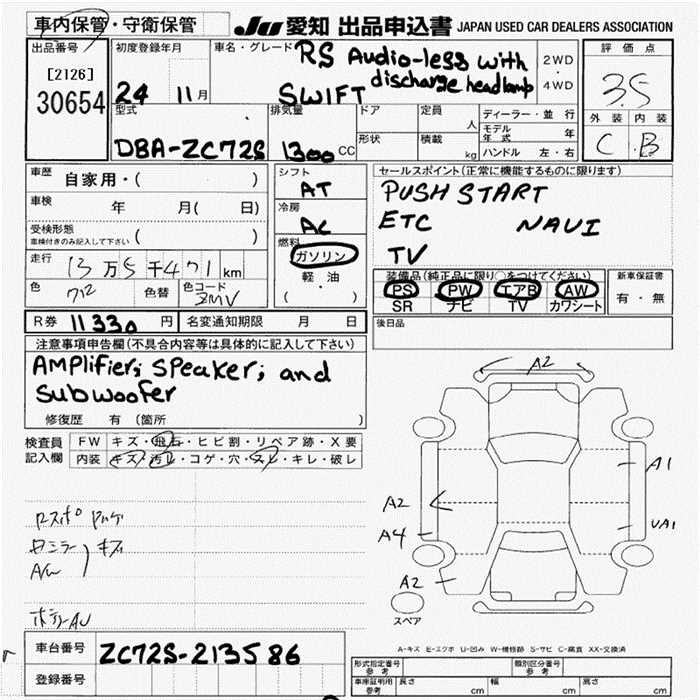 車内保管・守衛保管
JU 愛知 出品申込書 JAPAN USED CAR DEALERS ASSOCIATION
出品番号
[2126]
30654
初度登録年月
24 11月
車名・グレード
RS Audio-less with
discharge headlamp
SWIFT
2WD
・
4WD
評価点
3.5
外装 内装
C B
型式
DBA-ZC72S
排気量
1300 CC
ドア
形状
定員
人
積載
kg
ディーラー・並行
モデル年式 年
ハンドル 左・右
車歴 自家用・( )
車検 年 月( 日)
受検形態
車検付きのみ記入して下さい ( )
走行 13万5千471km
色 色替 色コード
ZMV
シフト
AT
冷房
AC
燃料
ガソリン
軽・油
・
( )
セールスポイント(正常に機能するものに限ります)
PUSH START
ETC NAVI
TV
装備品(純正品に限り○をつけてください)
PS PW エアB AW
SR ナビ TV カワシート
新車保証書
有・無
R券 11330円 名変通知期限 月 日
後日品
注意事項申告欄(不具合内容等は具体的に記入して下さい)
Amplifier; speaker; and
subwoofer
修復歴 有(箇所 )
検査員
記入欄
FW キズ・飛石・ヒビ割・リペア跡・X要
内装 キズ・汚レ・コゲ・穴・スレ・キレ・破レ
キズ
A/W
A2
A1
A2
UA1
A4
A2
スペア
A-キズ E-エクボ U-凹み W-補修跡 S-サビ C-腐食 XX-交換済
車台番号 ZC72S-213586
登録番号
形式指定番号
参考
類別区分番号
参考
車庫証明用
参考
長さ cm 幅 cm 高さ cm